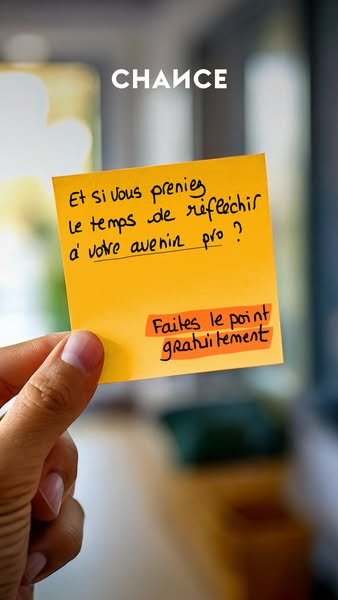 CHANCE
Et si vous preniez
le temps de réfléchir
à votre avenir pro ?
Faites le point
gratuitement